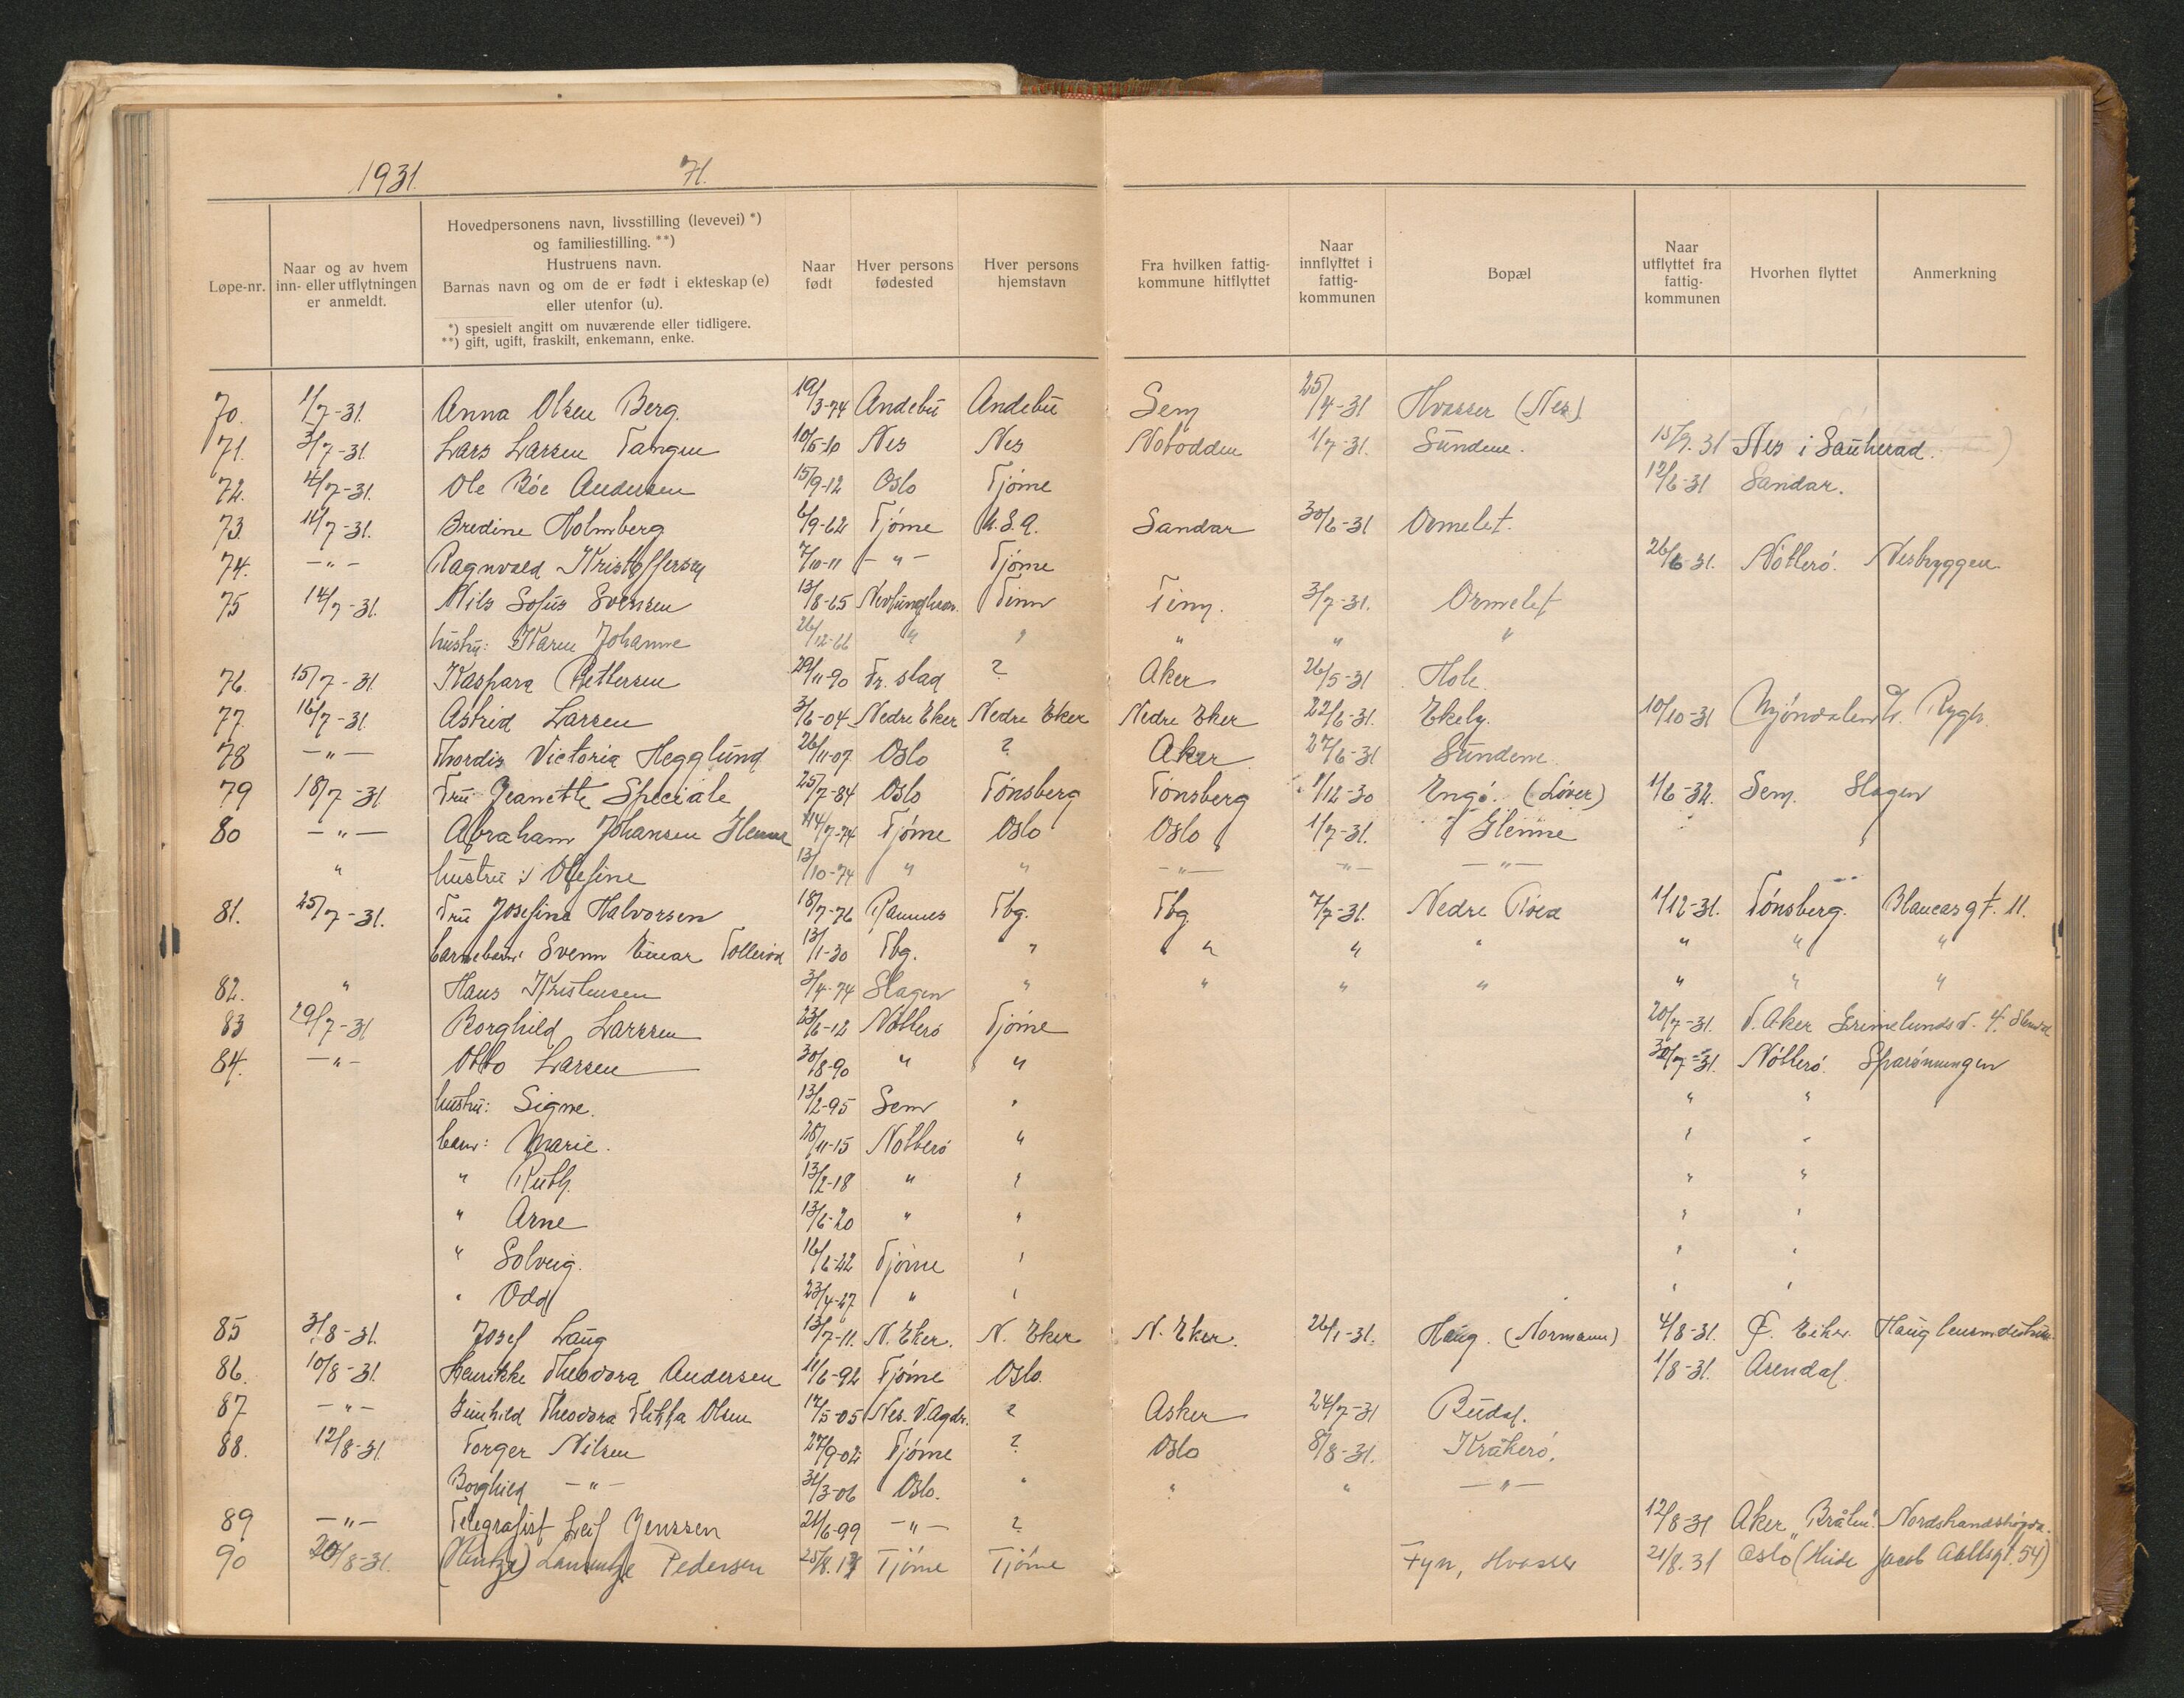 1931.
71.
Løpe-nr.
Naar og av hvem
inn- eller utflytningen
er anmeldt.
Hovedpersonens navn, livsstilling (levevei) *)
og familiestilling. **)
Hustruens navn.
Barnas navn og om de er født i ekteskap (e)
eller utenfor (u).
*) spesielt angitt om nuværende eller tidligere.
**) gift, ugift, fraskilt, enkemann, enke.
Naar
født
Hver persons
fødested
Hver persons
hjemstavn
Fra hvilken fattig-
kommune hitflyttet
Naar
innflyttet i
fattig-
kommunen
Bopæl
Naar
utflyttet fra
fattig-
kommunen
Hvorhen flyttet
Anmerkning
70. 1/7-31. Anna Olsen Berg. 19/3-74 Andebu Andebu Sem 25/4-31 Hvasser (Nes)
71. 3/7-31. Lars Larsen Tangen 10/5-10 Nes Nes Notodden 1/7-31. Sundene. 15/7.31 Nes i Sauherad.
72. 4/7-31. Ole Bóe Andersen 15/9-12 Oslo Tjóme 12/6-31 Sandar.
73. 11/7-31. Bredine Holmberg 6/9-62 Tjóme U.S.A. Sandar 30/6-31 Ormelet.
74. -"- Ragnvald Kristoffersen 7/10-11 -"- Tjóme 26/6-31. Nótteró. Nesbryggen.
75 14/7-31. Nils Sofus Svensen 13/8-65 Nevlunghavn. Tinn Tinn. 3/7-31. Ormelet
hustru: Karen Johanne 26/12-66 " " " " "
76. 15/7-31. Kaspara Pettersen 29/11-90 Fr. stad ? Aker 26/5-31 Hole.
77. 16/7-31 Astrid Larsen 3/6-04 Nedre Eker Nedre Eker Nedre Eker 22/6-31. Ekely. 10/10-31 Mjóndalen Rygh.
78 -"- Thordis Victoria Hegglund 26/11-07 Oslo ? Aker 27/6-31 Sundene
79 18/7-31 Fru Jeanette Speciale 25/7-84 Oslo Tónsberg Tónsberg 1/12-30 Engó. (Lóver) 1/6-32. Sem. Slagen
80 -"- Abraham Johansen Glenne 14/7-74 Tjóme Oslo Oslo 1/7-31. Glenne
" hustru: Olefine 13/10-74 " " -"- -"- -"-
81. 25/7-31. Fru Josefine Halvorsen 18/7-76 Ramnes Tbg. Tbg. 7/7-31. Nedre Róed 1/12-31. Tónsberg. Blancasgt. 11.
barnebarn: Svenn Einar Tolleród 13/1-30 Tbg. " " " " " " "
82. " Hans Kristensen 3/4-74 Slagen " " " " " " "
83 29/7-31 Borghild Larssen 23/6-12 Nótteró Tjóme 20/7-31. V. Aker Grimelundsv. 4.
84. -"- Otto Larsen 30/8-90 " " 30/7-31. Nótteró.
hustru: Signe. 13/2-95 Sem " " "
barn: Marie. 28/11-15 Nótteró " " "
" Ruth. 13/2-18 " " " "
" Arne 13/6-20 " " " "
" Solveig. 16/6-22 Tjóme " " "
" Odd 23/4-27 " " " "
85 3/8-31. Josef Laug 13/7-11. N. Eker. N. Eker N. Eker. 26/1-31. Haug. (Normann) 4/8-31. Ø. Eiker.
86. 10/8-31. Henrikke Theodora Andersen 11/6-92 Tjóme Oslo. 1/8-31. Arendal.
87 -"- Gunhild Theodora Olsen 12/5-05 Nes. V. Agder. ? Asker 24/7-31 Budal.
88. 12/8-31. Torger Nilsen 27/9-02 Tjóme ? Oslo 8/8-31. Kråkeró.
Borghild -"- 31/3-06 Oslo. " " " -"-
89 -"- Telegrafist Leif Jenssen 21/6-99 -"- ? 12/8-31 Aker
90 20/8-31. Pedersen Tjóme Tjóme Fyn, Hvasser 21/8.31 Oslo Jacob Aallsgt. 54)